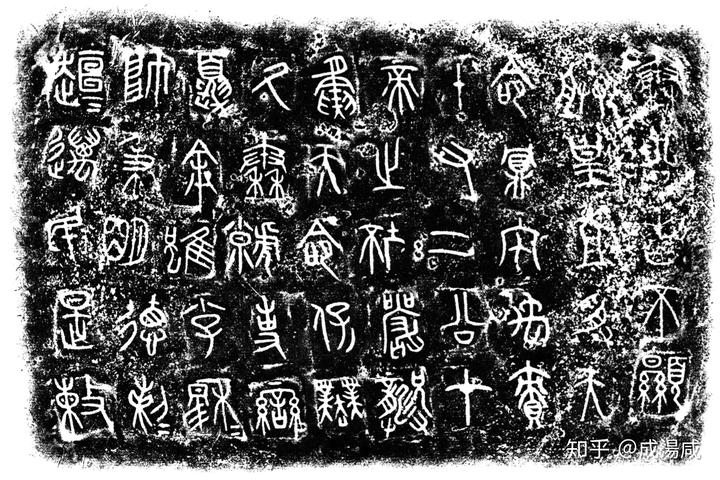 秦公曰不顯
朕皇且受天
命鼏宅禹責
十又二公才
帝之坏嚴龏
夤天命保業
氒秦虩事蠻
夏余雖小子穆=
帥秉明德剌=
趄=萬民是敕
知乎 @成湯咸